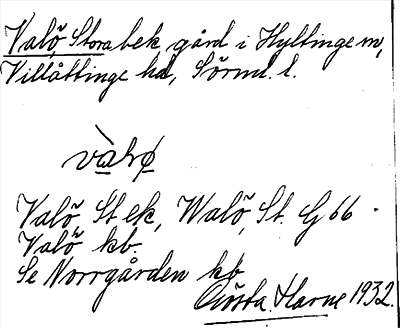 Valö, Stora bek, gård i Hyltinge m,
Villåttinge hd, Sörml. l.
Valö St ek, Walö, St. G 66 -
Valö kb.
Se Norrgården kb
Gösta Harne 1932.